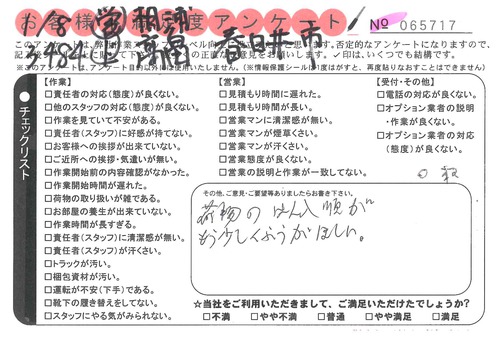 お客様満足度アンケート
№ 065717
1/8
春日井市
【作業】
□責任者の対応(態度)が良くない。
□他のスタッフの対応(態度)が良くない。
□作業を見ていて不安がある。
□責任者(スタッフ)に好感が持てない。
□お客様への挨拶が出来ていない。
□ご近所への挨拶・気遣いが無い。
□作業開始前の内容確認がなかった。
□作業開始時間が遅れた。
□荷物の取り扱いが雑である。
□お部屋の養生が出来ていない。
□作業時間が長すぎる。
□責任者(スタッフ)に清潔感が無い。
□責任者(スタッフ)が汗くさい。
□トラックが汚い。
□梱包資材が汚い。
□運転が安奈(下手)である。
□靴下の履き替えをしてない。
□スタッフにやる気がみられない。
【営業】
□見積もり時間に遅れた。
□見積もり時間が長い。
□営業マンに清潔感が無い。
□営業マンが煙草くさい。
□営業マンが汗くさい。
□営業態度が良くない。
□営業の説明と作業が一致してない。
【受付・その他】
□電話の対応が良くない。
□オプション業者の説明
・作業が良くない。
□オプション業者の対応
(態度)が良くない。
チェックリスト
その他、ご意見・ご要望等ありましたらお書き下さい。
荷物のはん入順が
もう少しくふうがほしい。
☆当社をご利用いただきまして、ご満足いただけたでしょうか?
□不満 □やや不満 □普通 □やや満足 □満足